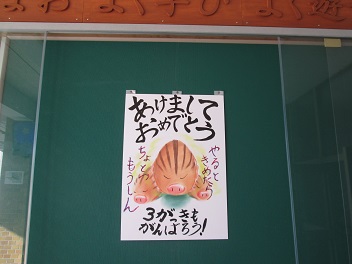 よく学び よく遊
あけまして
おめでとう
やると
きめたら
ちょとつ
もうしん
3がっきも
がんばろう!